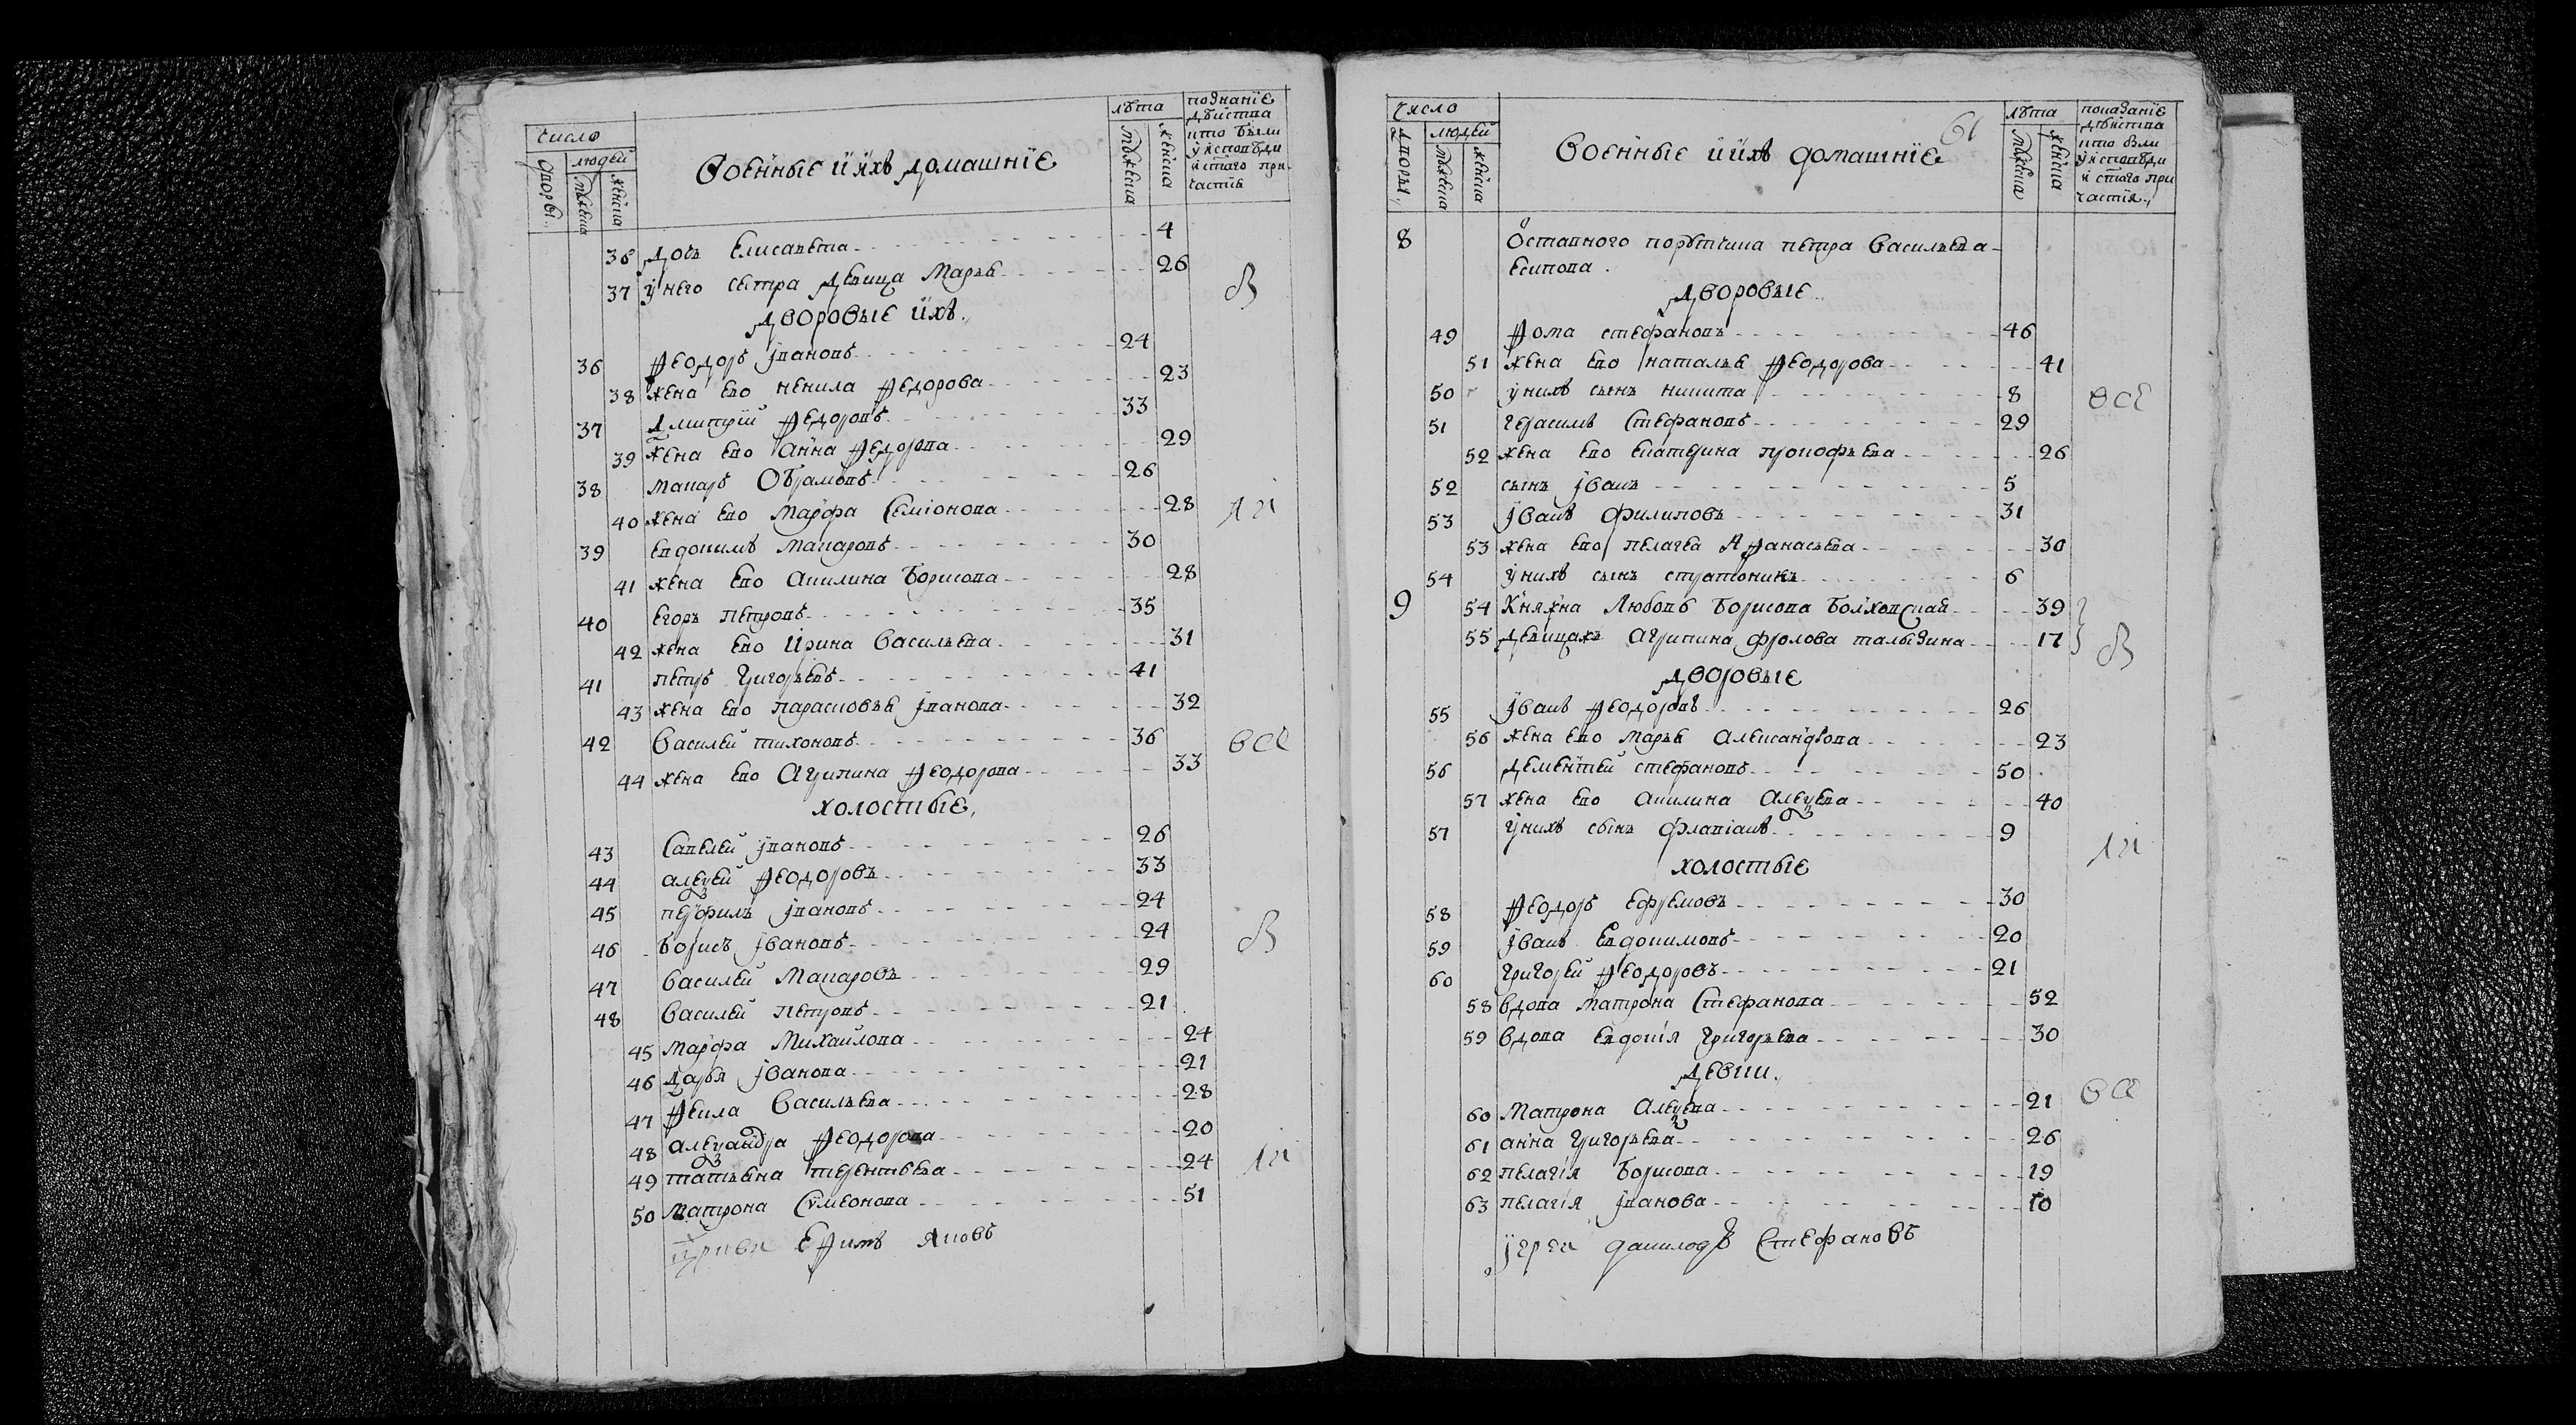 число лѣта показаніе
дворы людей Военные и ихъ домашніе мужеска женска дѣиства
мужеска женска кто были
у исповѣди
и с͠таго при
частія
36 Дочь Елисавета 4
37 у него сестра Девица Марья 26
Дворовые ихъ
36 Ѳеодоръ Ивановъ 24
38 жена ево Ненила Ѳедорова 23
37 Дмитрій Ѳедоровъ 33
39 жена ево Анна Ѳедорова 29
38 Макаръ Обрамовъ 26
40 жена ево Марфа Семіонова 28
39 Евдокимъ Макаровъ 30
41 жена ево Акилина Борисова 28
40 Егоръ Петровъ 35
42 жена ево Ирина Васильева 31
41 Петръ Григорьевъ 41
43 жена ево Парасковья Иванова 32
42 Василей Тихоновъ 36 все
44 жена ево Агрипина Ѳеодорова 33
холостые
43 Савелей Ивановъ 26
44 Алеѯей Ѳеодоровъ 33
45 Перфилъ Ивановъ 24
46 Борисъ Ивановъ 24
47 Василей Макаровъ 29
48 Василей Петровъ 21
45 Марфа Михайлова 24
46 Дарья Иванова 21
47 Ѳекла Васильева 28
48 Алеѯандра Ѳеодорова 20
49 Татьяна Терентьева 24
50 Матрона Сѵмеонова 51
Еѳимъ Яковъ
61
число лѣта показаніе
дворы людей Военные и ихъ домашніе мужеска женска дѣиства
мужеска женска кто были
у исповѣди
и с͠таго при
частія
8 Отставного порутчика Петра Васильева
Есипова
Дворовые
49 Ѳома Стефановъ 46
51 жена ево Наталья Ѳеодорова 41
50 у нихъ сынъ Никита 8 все
51 Герасимъ Стефановъ 29
52 жена ево Екатерина Прокофьева 26
52 сынъ Иванъ 5
53 Иванъ Филиповъ 31
53 жена ево Пелагея Аѳанасьева 30
54 у нихъ сынъ Стратоникъ 6
9 54 Княжна Любовь Борисова Болховская 39
55 Девицахъ Агрипина Фролова Талызина 17
Дворовые
55 Иванъ Ѳеодоровъ 26
56 жена ево Марья Александрова 23
56 Дементей Стефановъ 50
57 жена ево Акилина Алеѯева 40
57 у нихъ сынъ Флавіанъ 9
холостые
58 Ѳеодоръ Ефремовъ 30
59 Иванъ Евдокимовъ 20
60 Григорей Ѳеодоровъ 21
58 вдова Матрона Стефанова 52
59 вдова Евдокія Григорьева 30
Девки
60 Матрона Алеѯева 21 все
61 Анна Григорьева 26
62 Пелагія Борисова 19
63 Пелагія Иванова 10
Іерей Стефановъ